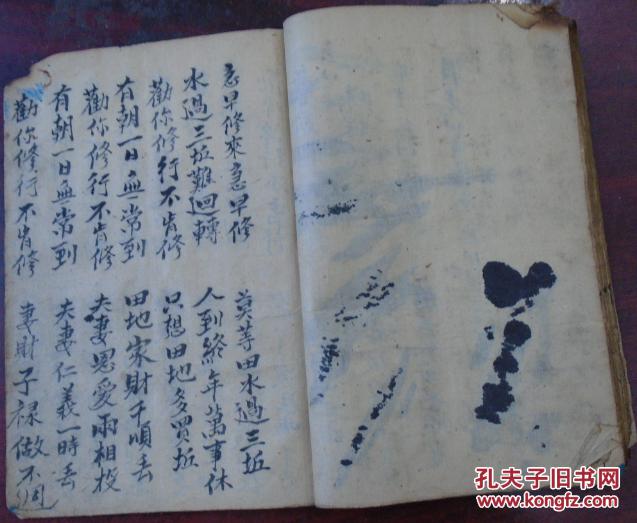 急早修來急早修 莫等田水過三坵
水過三坵難迴轉 人到終年萬事休
勸你修行不肯修 只想田地多買坵
有朝一日無常到 田地家財千頃丢
勸你修行不肯修 夫妻恩愛兩相投
有朝一日無常到 夫妻仁義一時丢
勸你修行不肯修 妻財子祿做不周
孔夫子旧书网
www.kongfz.com